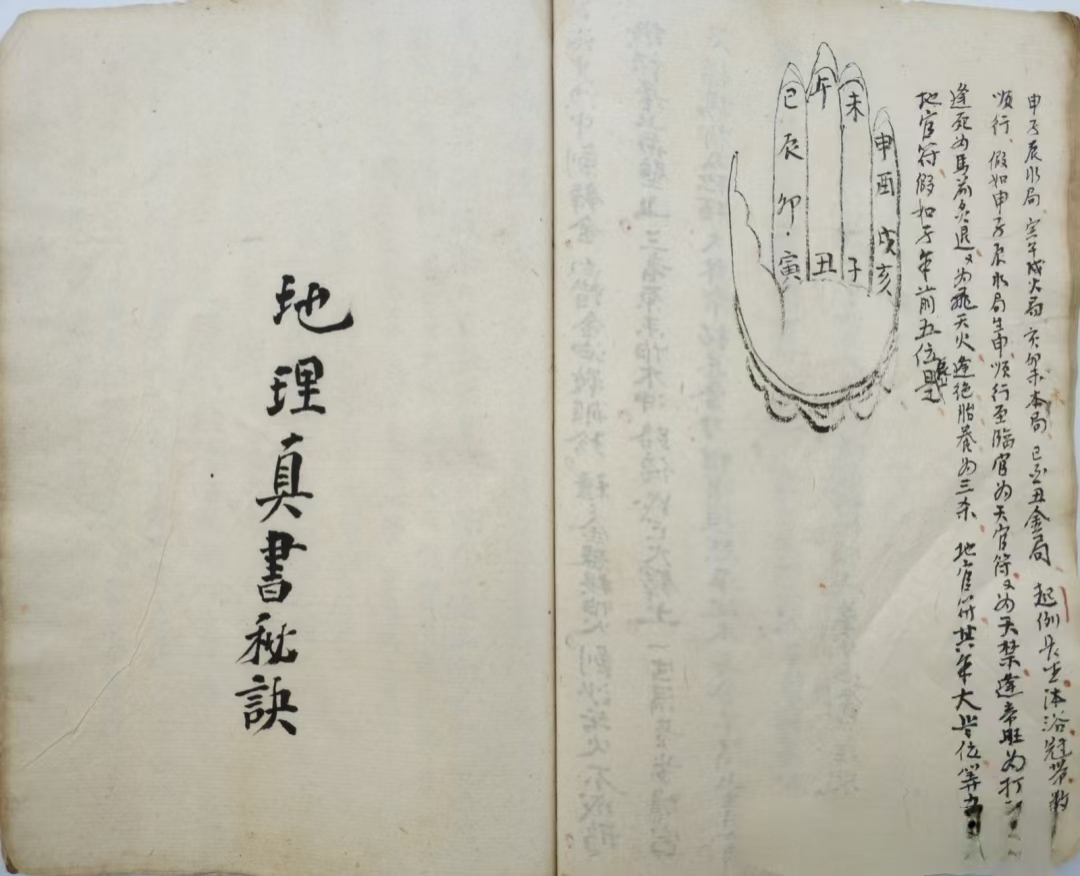 申子辰水局 寅午戌火局 亥卯未木局 巳酉丑金局 起例長生沐浴冠帶數
順行 假如申子辰水局生申順行至臨官为天官符又为天禁逢帝旺为打
逢死为馬前炙退又为飛天火逢绝胎養为三杀 地官符其年大歲位算
地官符假如子年前五位是辰
申酉戌亥
未子
午丑
巳辰卯寅
地理真書秘訣